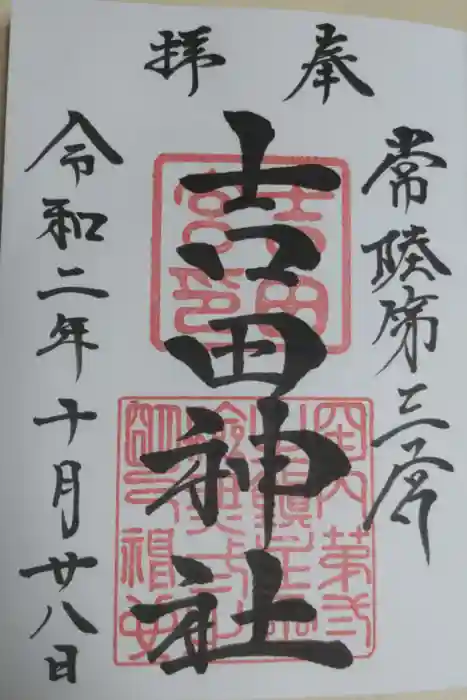 奉拝
常陸第三宮
吉田神社
令和二年十月廿八日